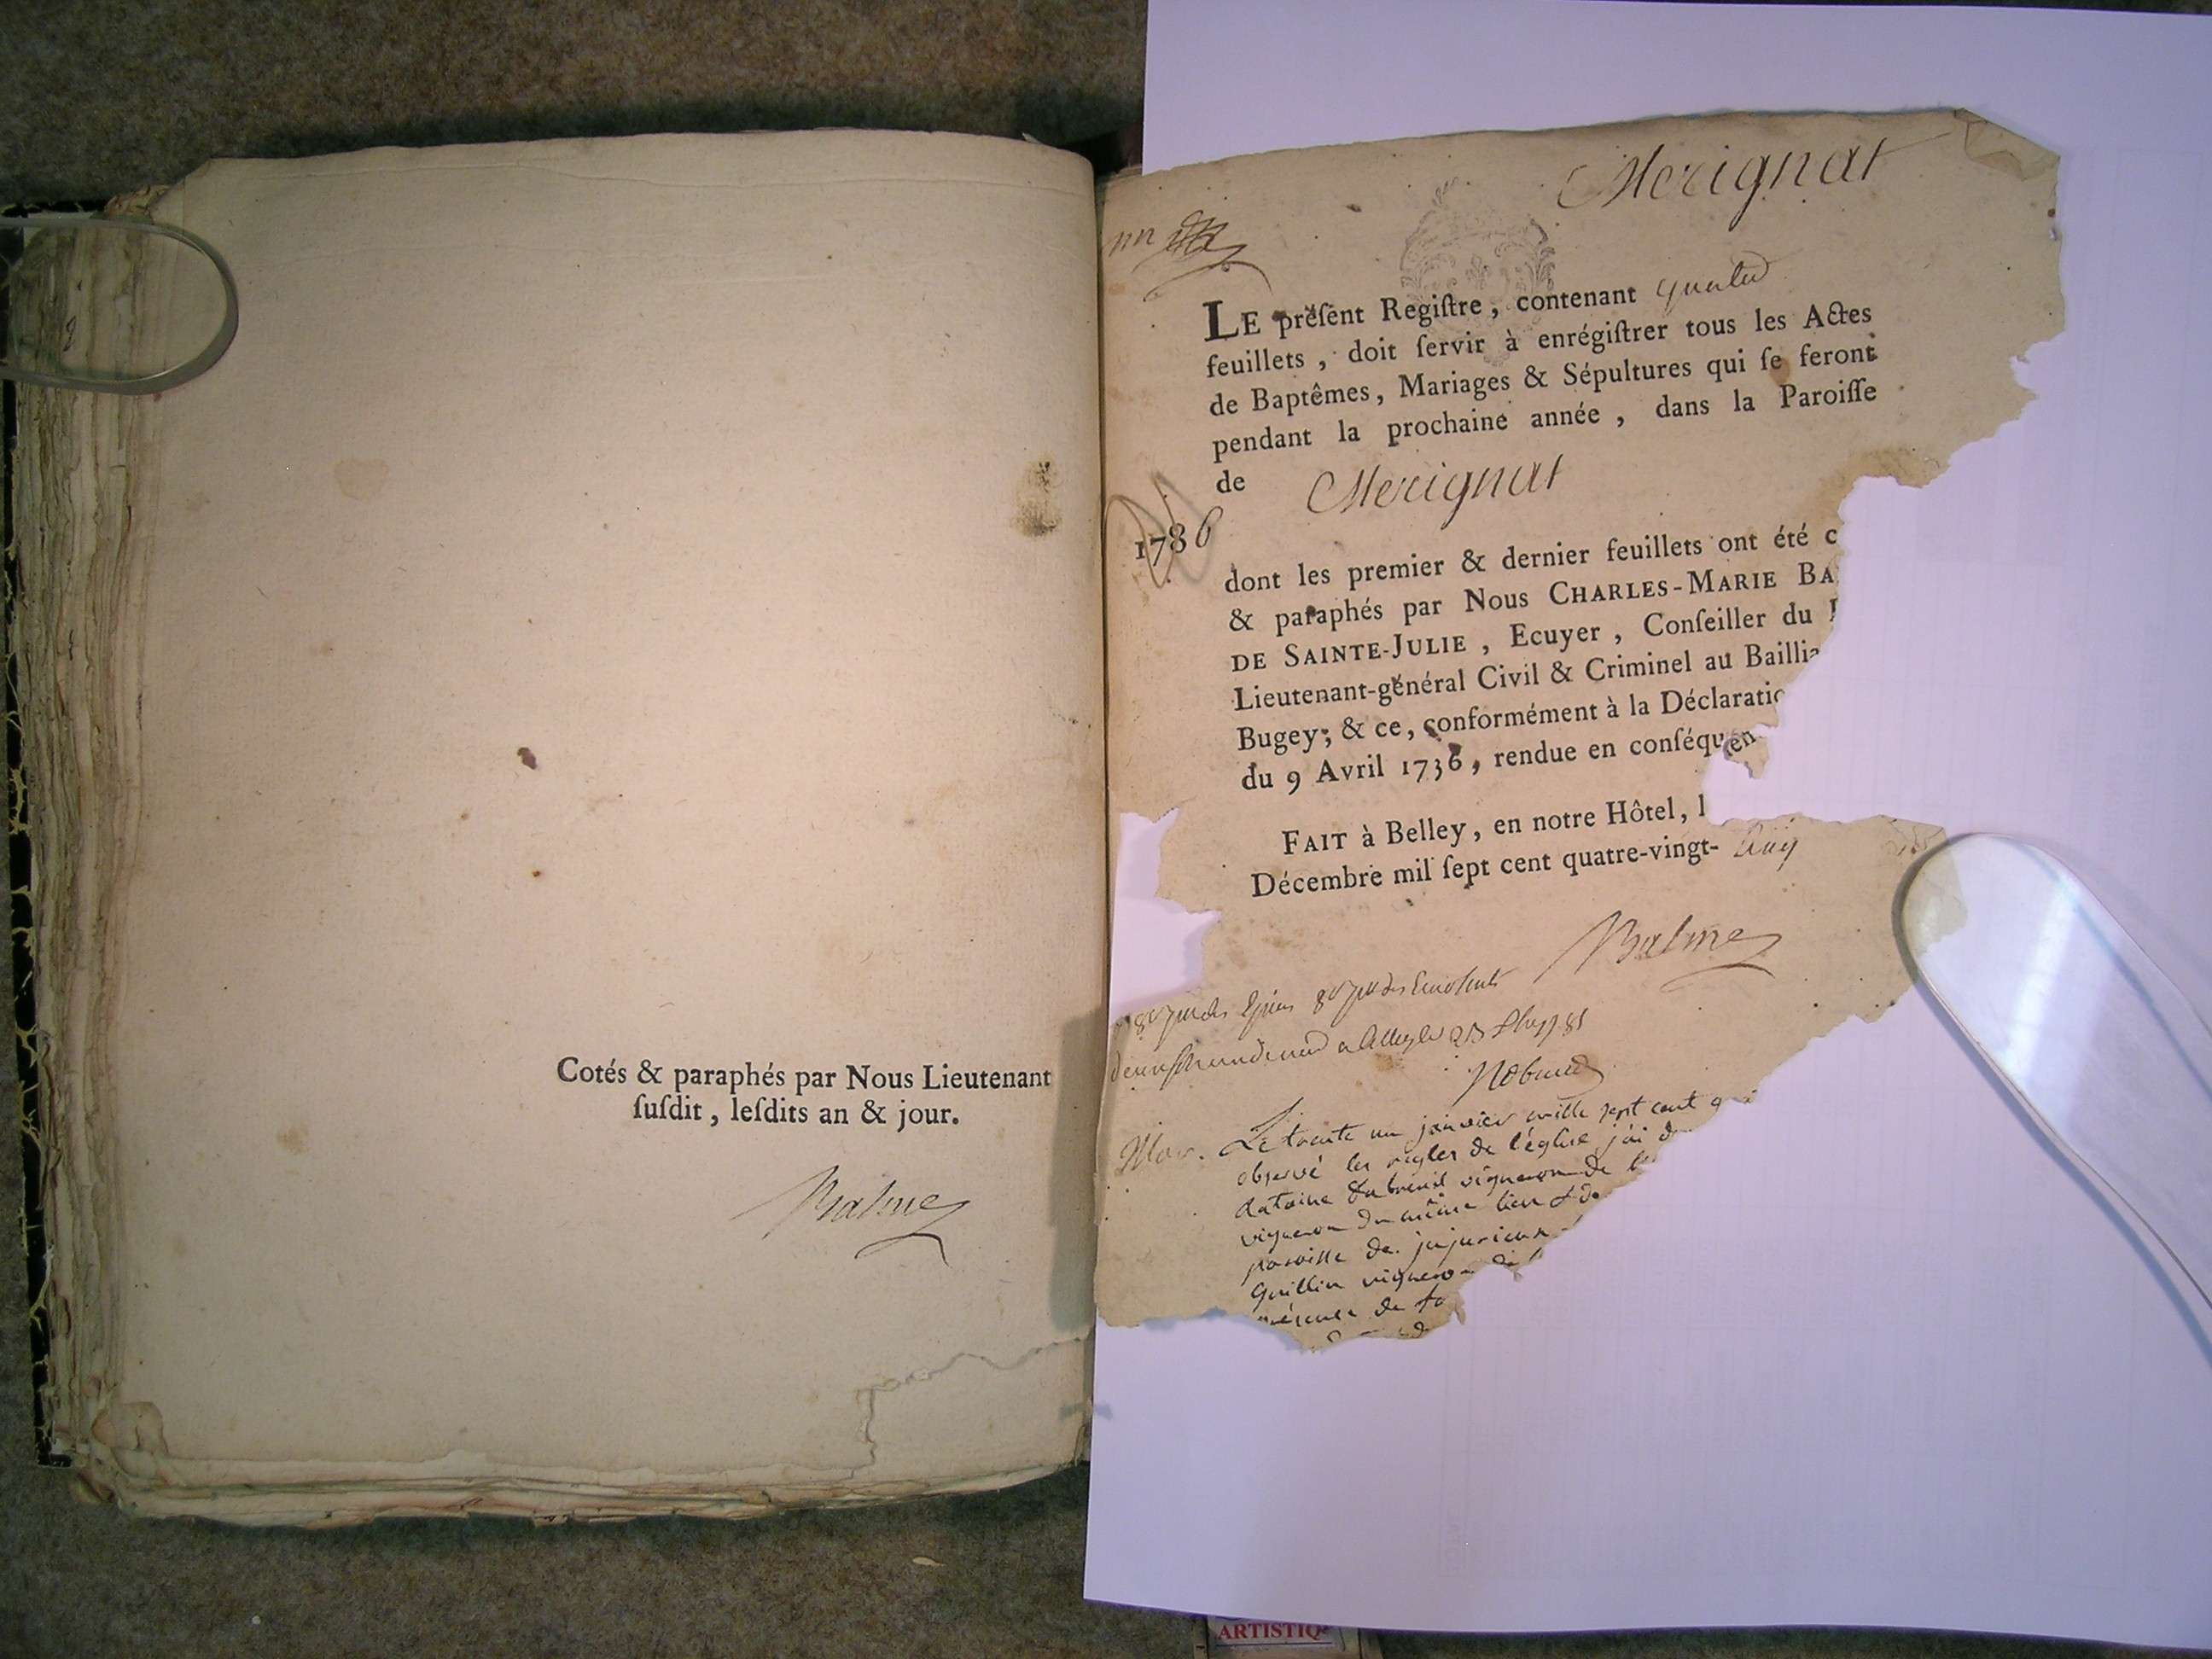 Cotés & paraphés par Nous Lieutenant
ſuſdit, leſdits an & jour.
Balme
Merignat
LE préſent Regiſtre, contenant quatre
feuillets, doit ſervir à enrégiſtrer tous les Actes
de Baptêmes, Mariages & Sépultures qui ſe feront
pendant la prochaine année, dans la Paroiſſe
de Merignat
1786
dont les premier & dernier feuillets ont été c
& paraphés par Nous CHARLES-MARIE BA
DE SAINTE-JULIE, Ecuyer, Conſeiller du
Lieutenant-général Civil & Criminel au Baillia
Bugey; & ce, conformément à la Déclaratio
du 9 Avril 1736, rendue en conſéquen
FAIT à Belley, en notre Hôtel, l
Décembre mil ſept cent quatre-vingt- cinq
Balme
Mar. Le trente un janvier mille sept cent q
observé les regles de l'église j'ai d
Antoine Dubreuil vigneron de
vigneron du même lieu & de
paroisse de jujurieux
Guillin vigneron de
présence de
ARTISTIQ